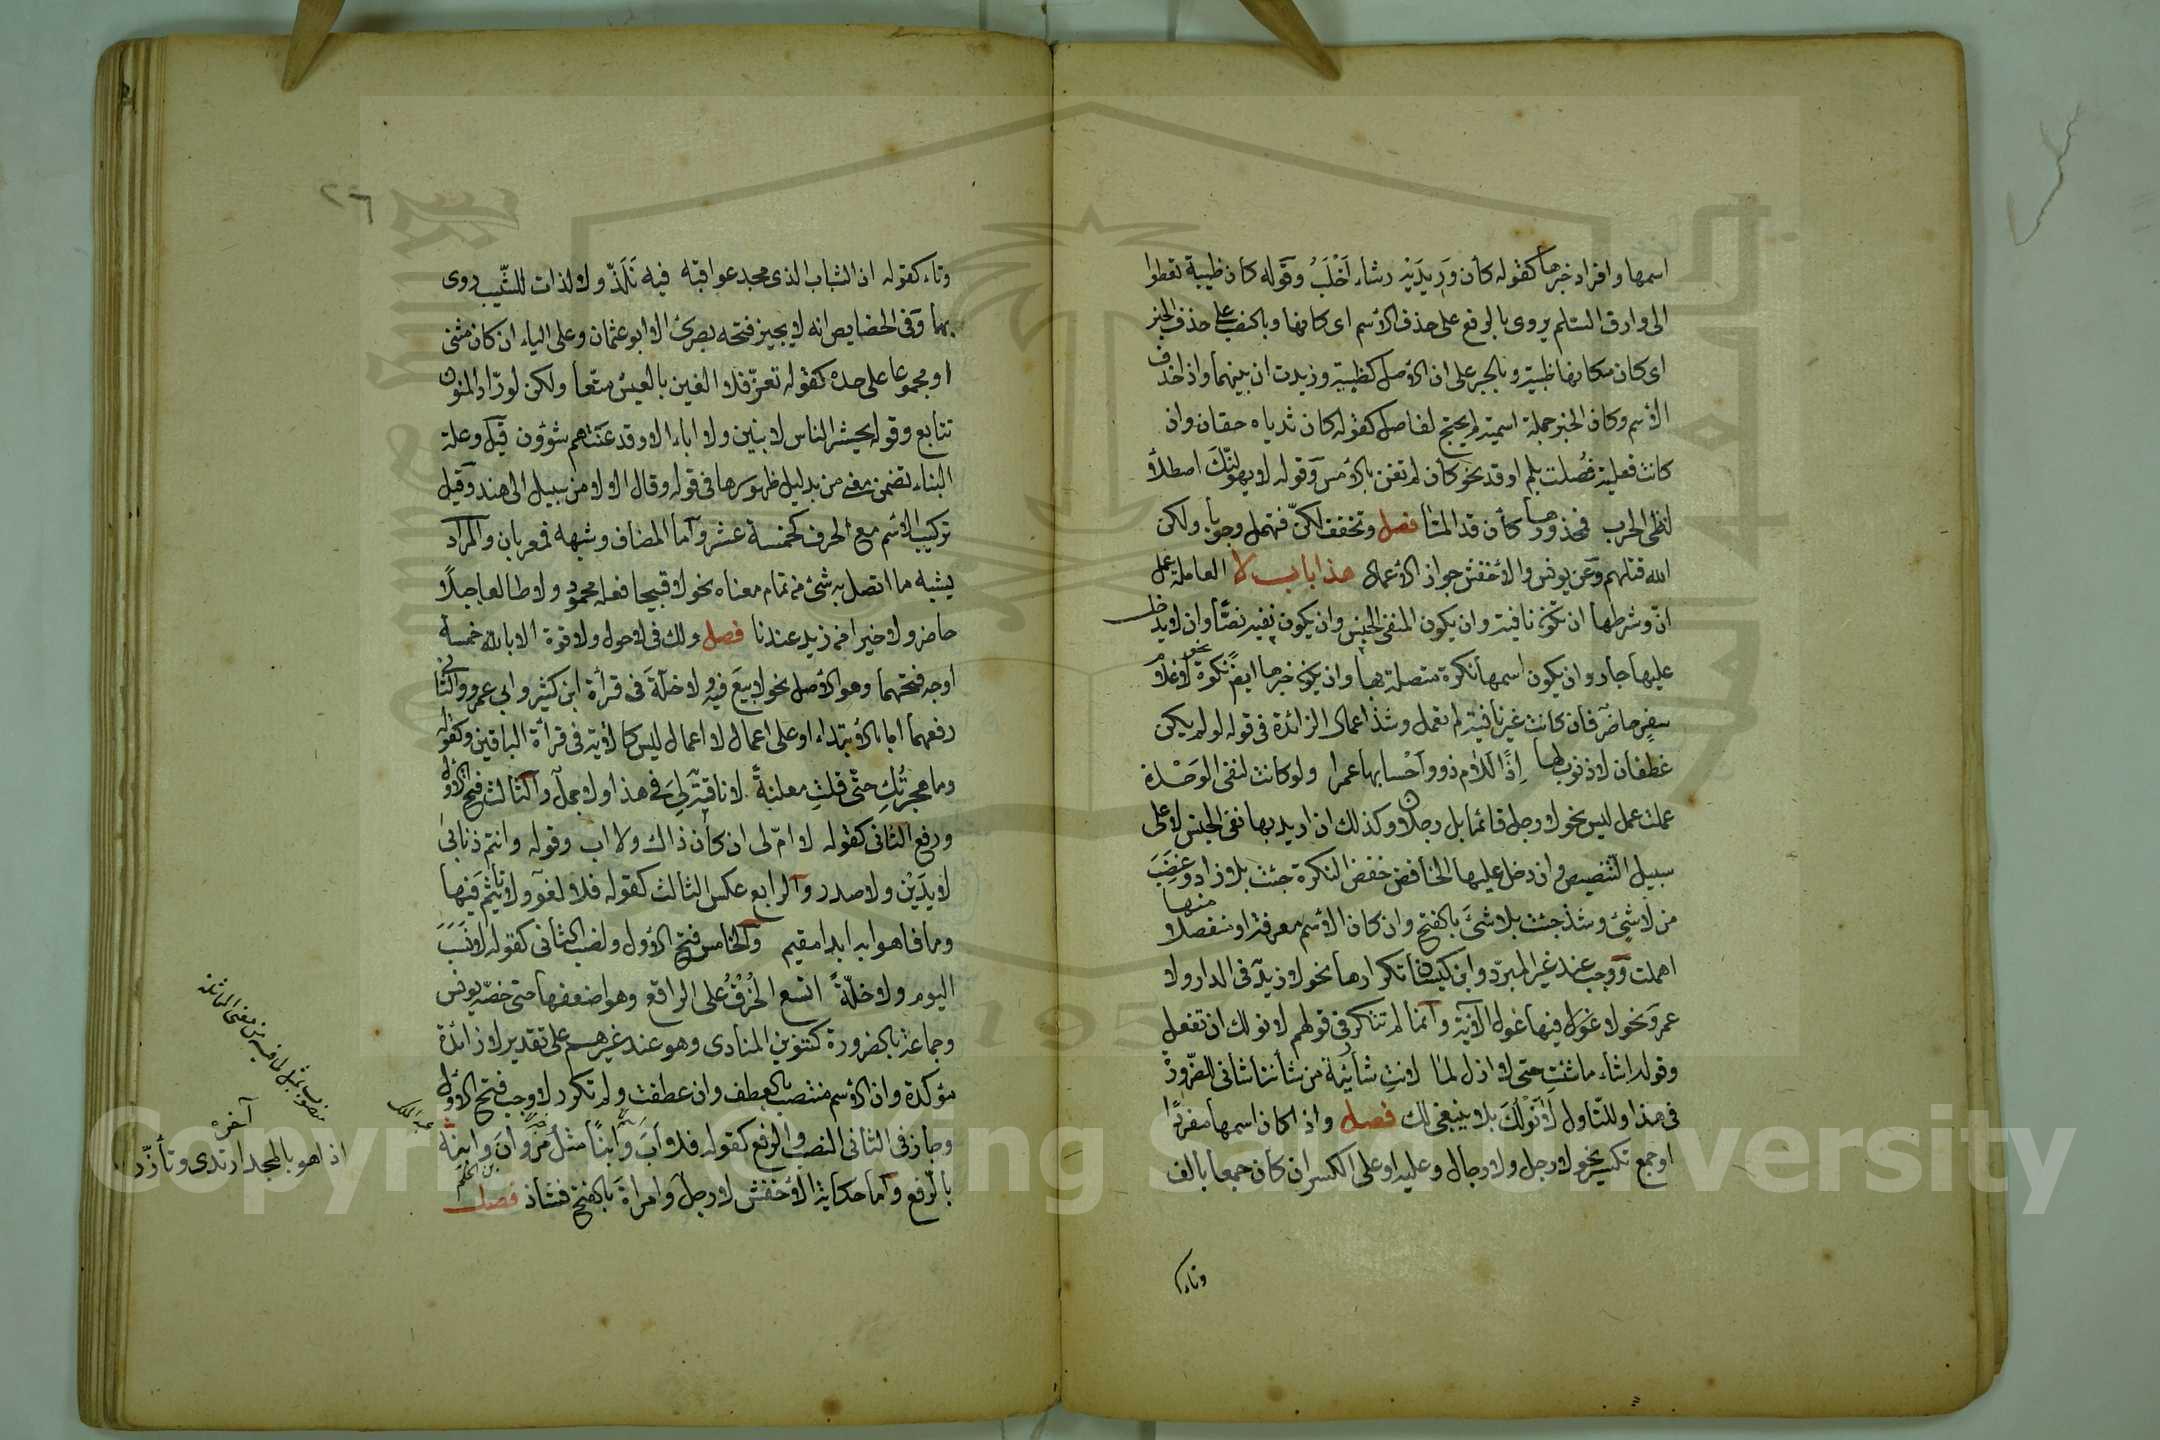 اسمها وافراد خبرها كقوله كأن وريديه رشاء اخلب وقوله كان ظبية تعطوا
الى وارق السلم يروى بالرفع على حذف الاسم اى كانها وبالنصب على حذف الخبر
اى كان مكانها ظبية وبالجر على ان الاصل كظبية وزيدت ان بينهما واذا حذف
الاسم وكان الخبر جملة اسمية لم يحتج لفاصل كقوله كان ثدياه حقان وان
كانت فعلية فصلت بلم او قد نحو كأن لم تغن بالامس وقوله لا يهولنك اصطلاء
لظى الحرب فمحذورها كأن قد المّا فصل وتخفف لكنّ فتهمل وجوبا نحو ولكن
الله قتلهم وعن يونس والاخفش جواز الاعمال هذا باب لا العاملة عمل
انّ وشرطها ان تكون نافية وان يكون المنفى الجنس وان يكون نفيه نصّا وان لا يدخل
عليها جار وان يكون اسمها نكرة متصلة بها وان يكون خبرها ايضً نكرة نحو لا غلام
سفر حاضر فان كانت غير نافية لم تعمل وشذ اعمال الزائدة فى قوله لو لم يكن
غطفان لا ذنوب لها اذًا للام ذووا احسابها عمرا ولو كانت لنفى الوحدة
عملت عمل ليس نحو لا رجل قائما بل رجلان وكذلك ان اريد بها نفى الجنس لا على
سبيل التنصيص وان دخل عليها الخافض خفض النكرة نحو جئت بلا زاد وغضبت
من لا شئ وشذ جئت بلا شئ بالفتح وان كان الاسم معرفة او منفصلا منها
اهملت ووجب عند غير المبرّد وابن كيسان تكرارها نحو لا زيد فى الدار ولا
عمرو ونحو لا فيها غول الآية وانما لم تتكرر فى قولهم لا نولك ان تفعل
وقوله اشاء ما شئت حتى لا ازال لما لا انت شائية من شأننا شانى للضرورة
فى هذا وللتاول لا نولك بلا ينبغى لك فصل واذا كان اسمها مفردا
او جمع تكسير نحو لا رجل ولا رجال وعليه او على الكسر ان كان جمعا بالف
وتاء
٢٦
وتاء كقوله ان الشباب الذى مجد عواقبه فيه نلذّ ولا لذات للشّيب روى
بهما وفى الخصايص انه لا يجيز فتحه بصرى الا ابو عثمان وعلى الياء ان كان مثنى
او مجموعا على حده كقوله تعزّ فلا الفين بالعيش متّعا ولكن لورّاد المنون
تتابع وقوله يحشر الناس لا بنين ولا اباء الا وقد عنتهم شؤون قيل وعلة
البناء تضمن معنى من بدليل ظهورها فى قوله وقال الا لا من سبيل الى هند وقيل
تركيب الاسم مع الحرف كخمسة عشر وأما المضاف وشبهه فمعربان والمراد
بشبهه ما اتصل به شئ من تمام معناه نحو لا قبيحا فعله محمود ولا طالعا جبلًا
حاضر ولا خيرا من زيد عندنا فصل ولك فى لا حول ولا قوة الا بالله خمسة
اوجه فتحهما وهو الاصل نحو لا بيع فيه ولا خلّة فى قرأة ابن كثير وابى عمرو والثانى
رفعهما اما بالابتداء او على اعمال لا اعمال ليس كالاية فى قرأة الباقين وكقوله
وما هجرتُكِ حتى قلتِ معلنةً لا ناقة لى فى هذا ولا جمل والثالث فتح الاول
ورفع الثانى كقوله لا امّ لى ان كان ذاك ولا اب وقوله وانتم ذنابى
لا يدين ولا صدر والرابع عكس الثالث كقوله فلا لغو ولا تاثيم فيها
وما فاهوا به ابدا مقيم والخامس فتح الاول ونصب الثانى كقوله لا نسب
اليوم ولا خلّةً اتسع الخرق على الراقع وهو اضعفها حتى خصّه يونس
وجماعة بالضرورة كتنوين المنادى وهو عند غيرهم على تقدير لا زائدة
مؤكدة وان الاسم منتصب بالعطف وان عطفت ولم تكرر لا وجب فتح الاول
وجاز فى الثانى النصب والرفع كقوله فلا اب وابنًا مثل مروان وابنه
بالرفع وأما حكاية الاخفش لا رجل وامراة بالفتح فشاذ فصل
عبد الملك
آخره
اذا هو بالمجد ارتدى وتأزّر